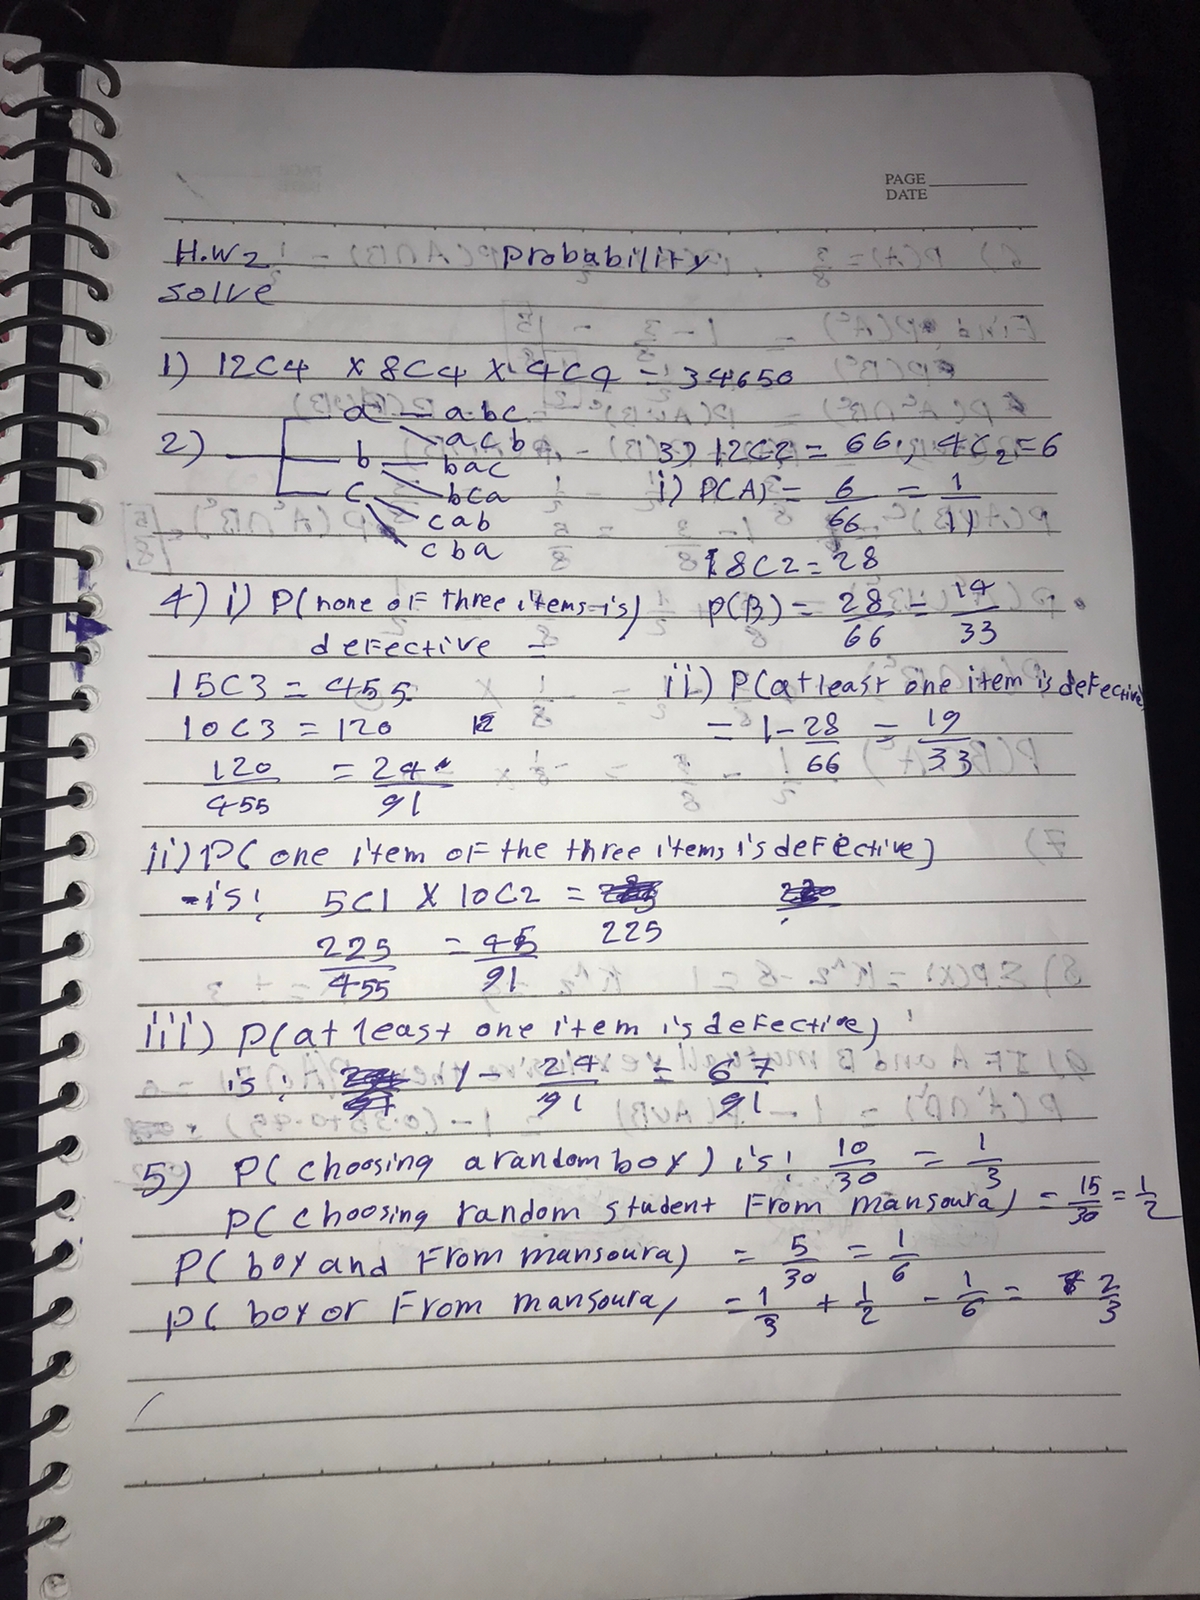 PAGE
DATE
H.W2 Probability
Solve
1) 12C4 X 8C4 X 4C4 = 34650
2) a abc
acb
b bac
bca
c cab
cba
3) 12C2 = 66, 4C2 = 6
i) P(A) = 6/66 = 1/11
8C2 = 28
P(B) = 28/66 = 14/33
ii) P(at least one item is defective)
= 1 - 28/66 = 19/33
4) i) P(none of three items is)
defective =
15C3 = 455
10C3 = 120
120/455 = 24/91
ii) P( one item of the three items is defective)
is: 5C1 X 10C2 = 225
225/455 = 45/91
iii) P(at least one item is defective)
is: 1 - 24/91 = 67/91
5) P(choosing a random box) is: 10/30 = 1/3
P(choosing random student From mansoura) = 15/30 = 1/2
P( box and From mansoura) = 5/30 = 1/6
P( box or From mansoura) = 1/3 + 1/2 - 1/6 = 2/3